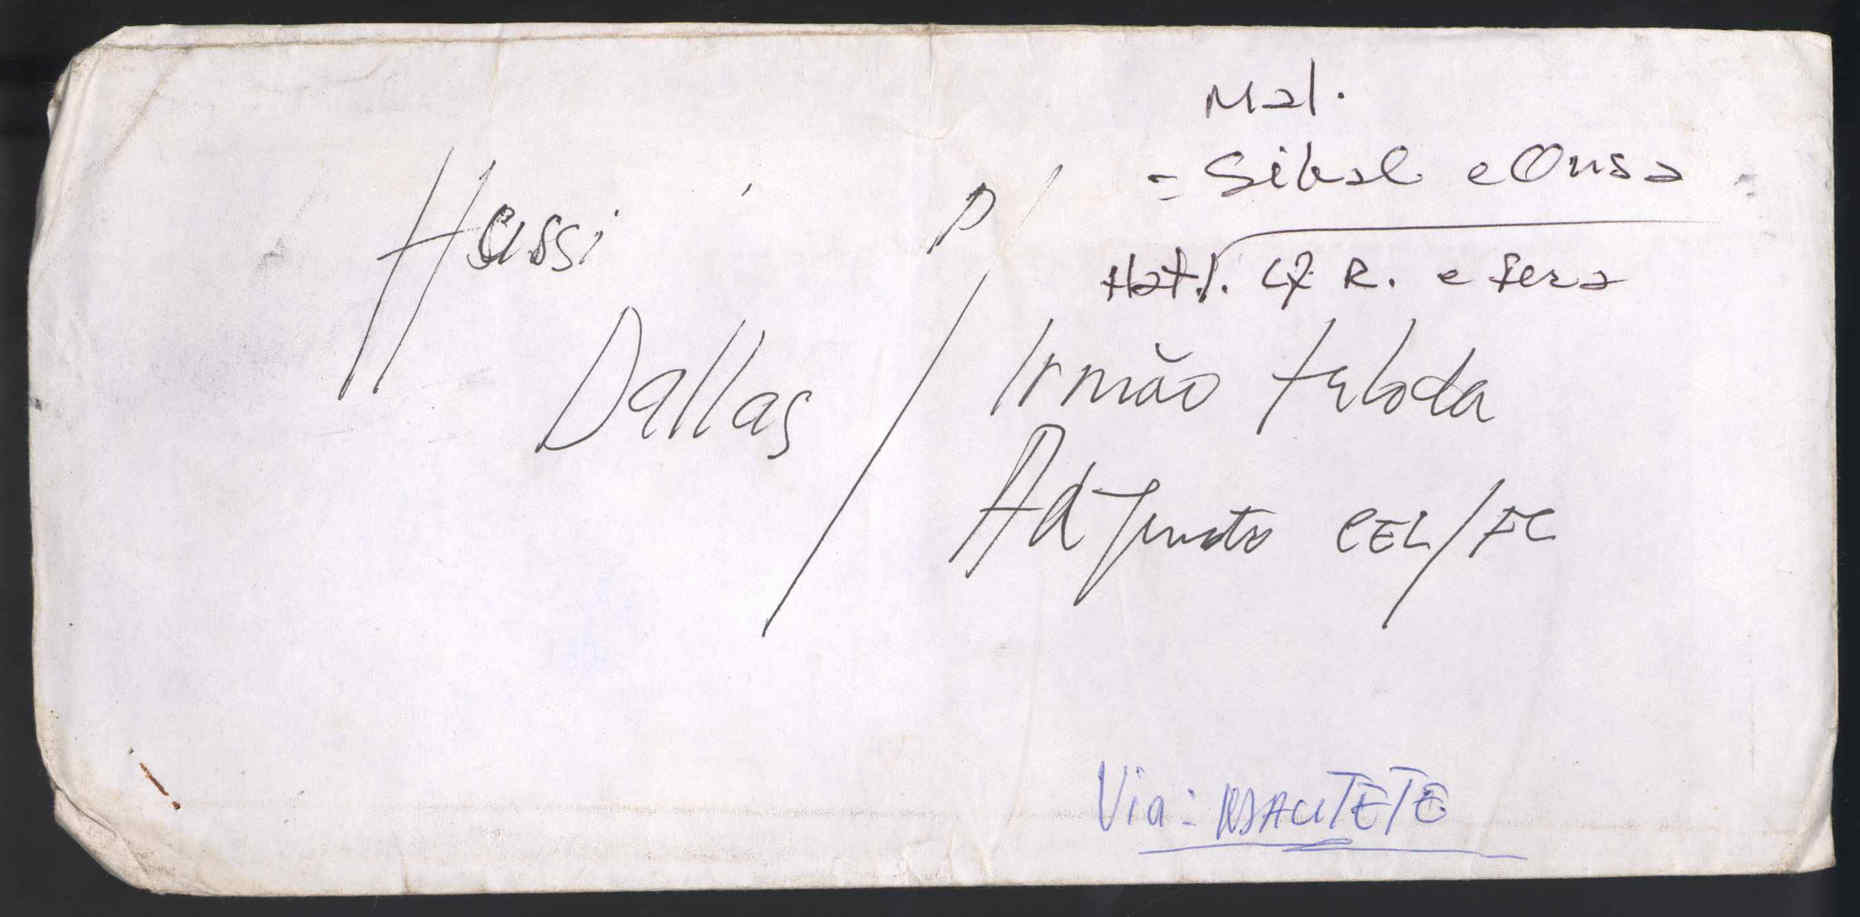 Mal.
= Sibal e Onsa
Hat. R. e fera
Hassi
P/
Dallas / Irmão taboda
Adjunto CEL/FC
Via: NSACUTETE